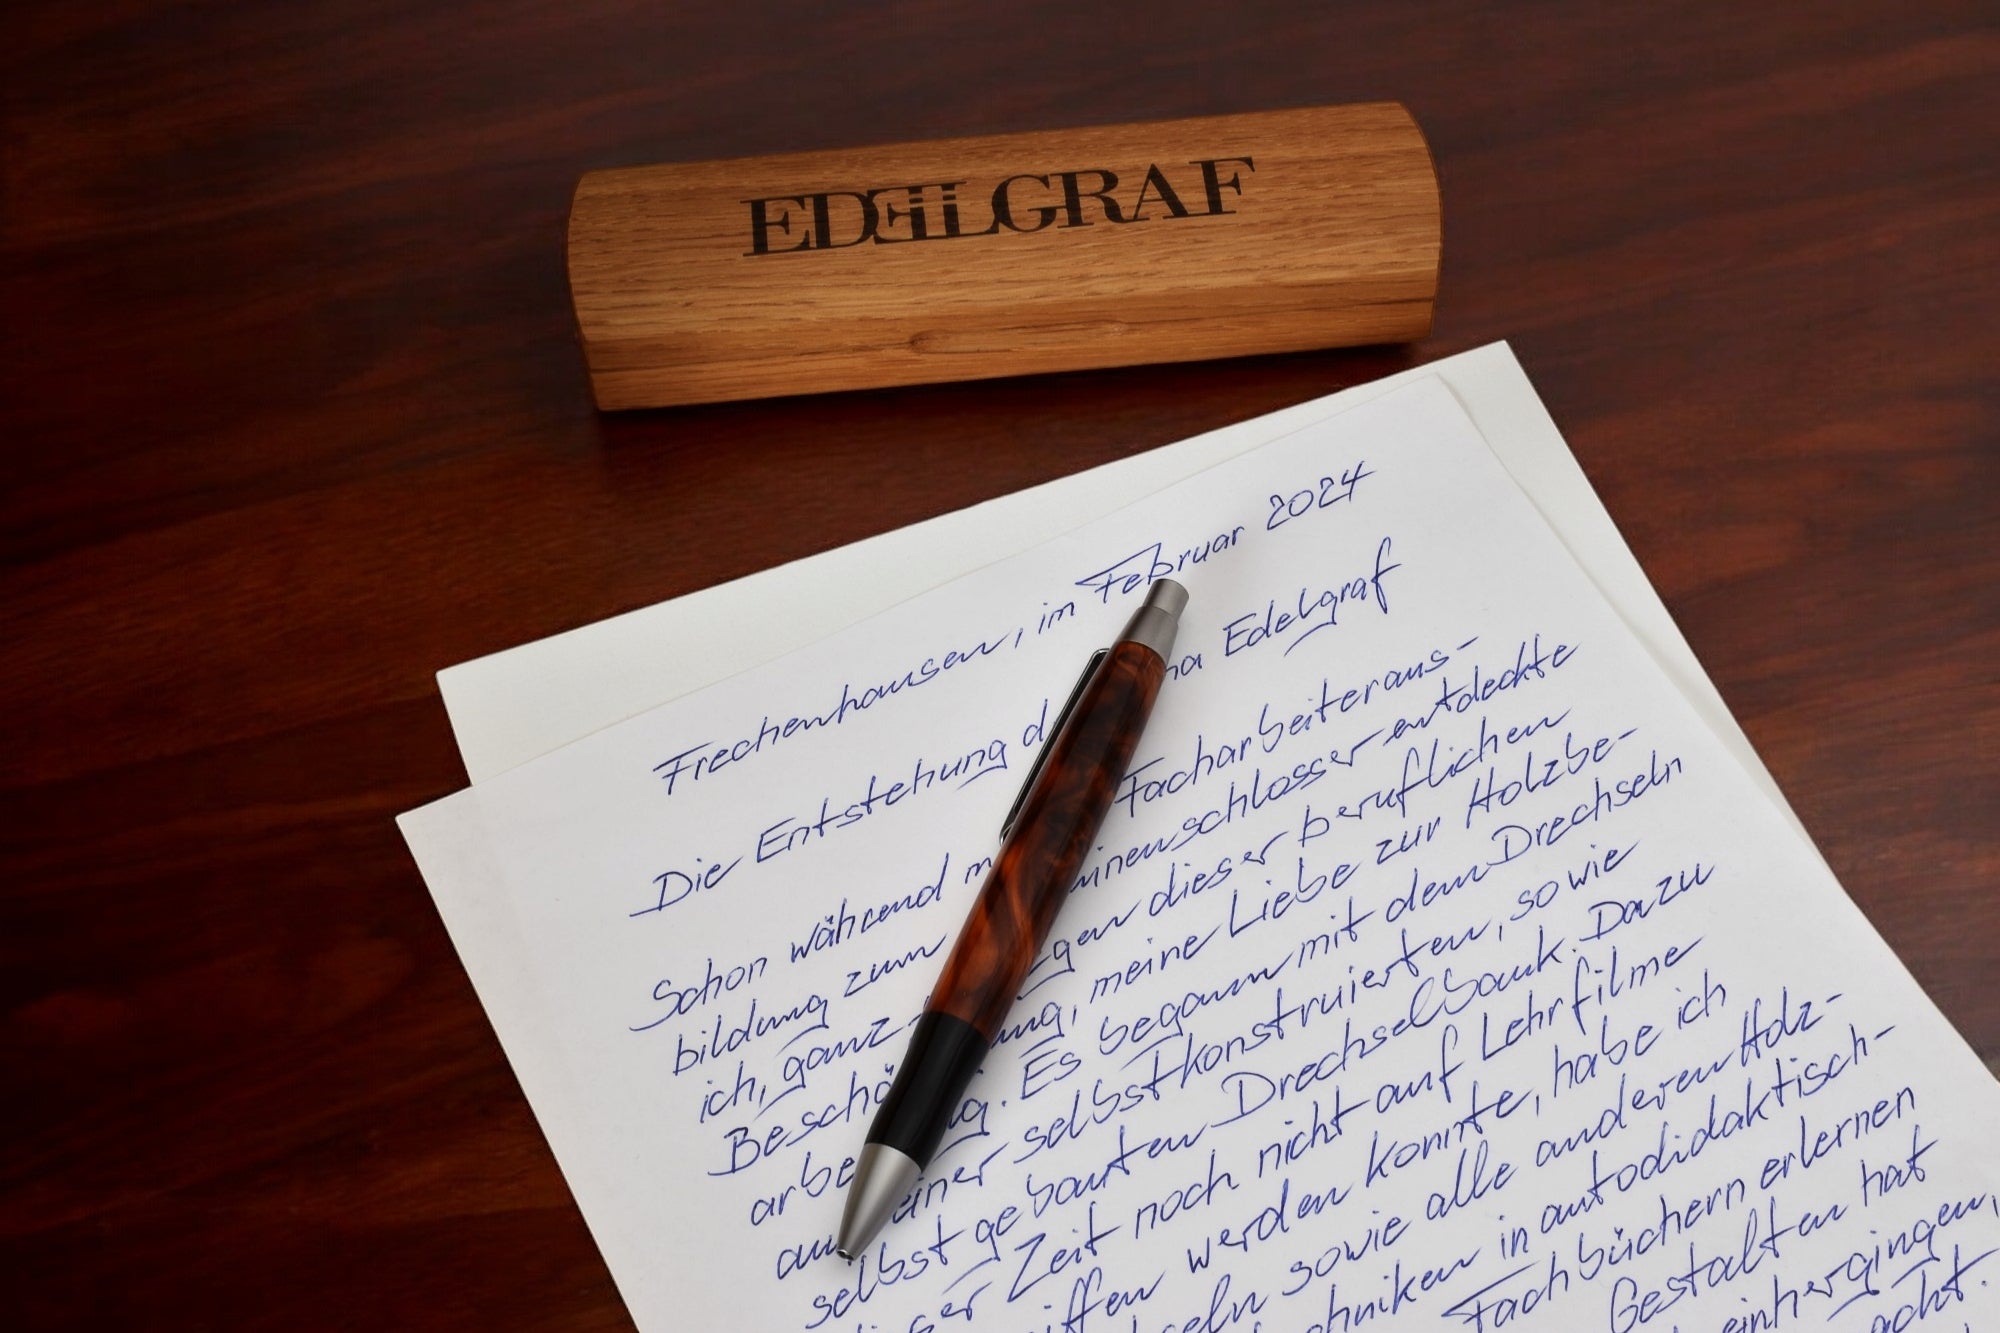 EDELGRAF
Frechenhausen, im Februar 2024
Die Entstehung Edelgraf
Schon während Facharbeiteraus-
bildung zum entdeckte
ich, ganz dieser beruflichen
meine Liebe zur Holzbe-
Es begann mit dem Drechseln
einer selbstkonstruierten, sowie
selbst gebauten Drechselbank. Dazu
Zeit noch nicht auf Lehrfilme
werden konnte, habe ich
sowie alle anderen Holz-
in autodidaktisch-
Fachbüchern erlernen
Gestalten hat
einhergingen,